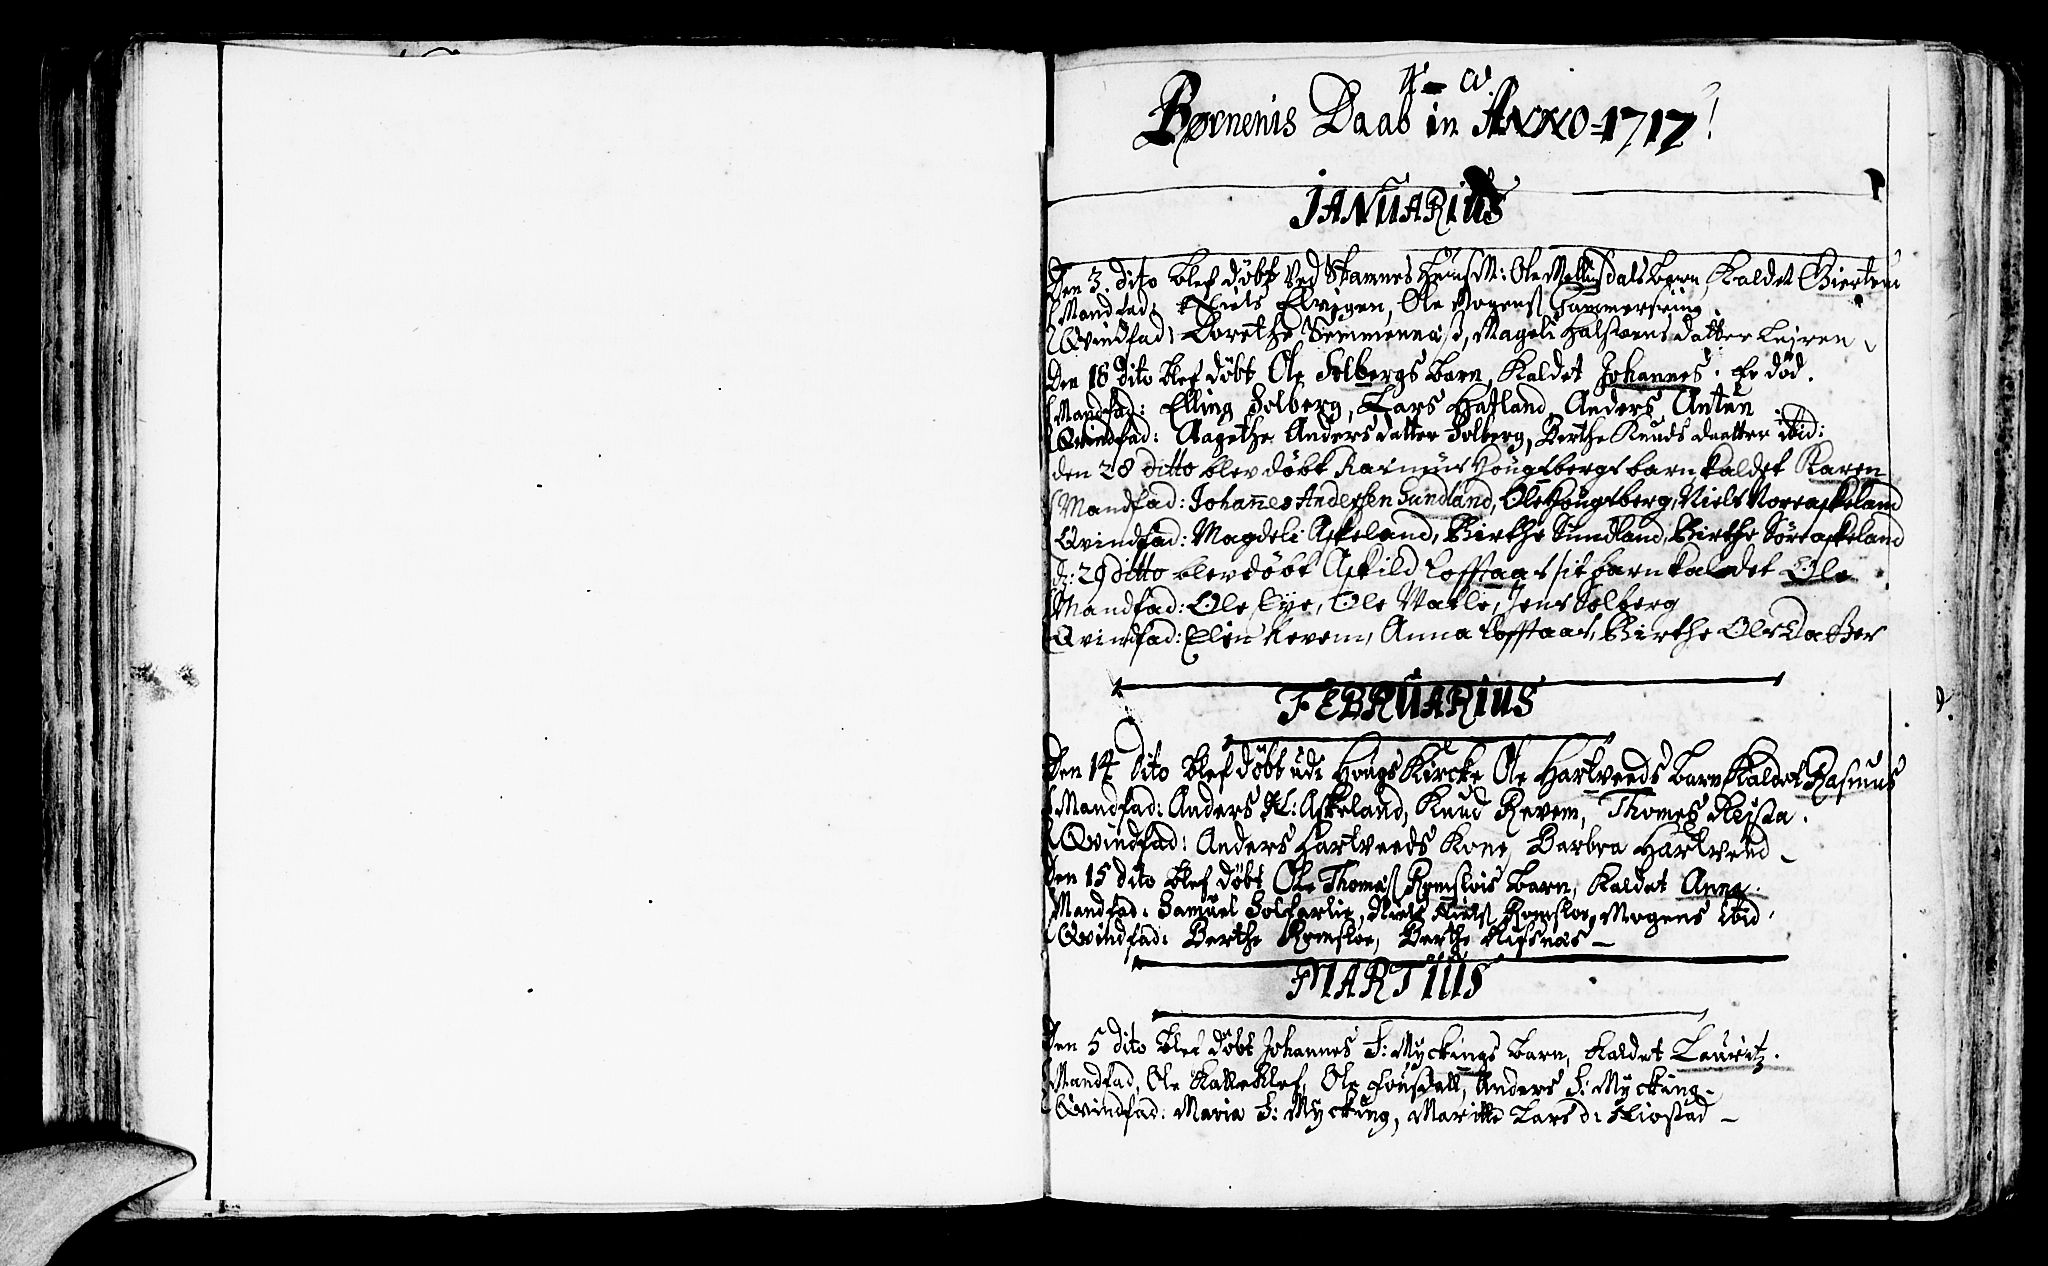 A - Ω.
Børnenis Daab in ANNO=1717!
JANUARIUS
Den 3. dito blef døbt ved Skamnes Huusm: Ole Mellisdals barn, kaldet Giertrui
Mandfad: Niels Elvigen, Ole Mogens Hammersring.
Qvindfad: Dorethe Semmennæss, Mageli Halsteens datter Leiren
Den 18 dito blef døbt Ole Solbergs barn, kaldet Johannes. Er død.
Mandfad: Elling Solberg, Lars Hatland, Anders Anten
Qvindfad: Aagethe Anders datter Solberg, Berthe Knuds daatter ibid:
den 28 ditto blev døbt Rasmus Hougsbergs barn kaldet Karen
Mandfad: Johannes Andersen Sundland, Ole Hougsberg, Niels Noreaskeland
Qvindfad: Magdeli Askeland, Birthe Sundland, Birthe Søreaskeland
d: 29 ditto blev døbt Askild Lofftaas sit barn kaldet Ole
Mandfad: Ole Eye, Ole Vatle, Jens Solberg
Qvindfad: Elin Revem, Anna Lofftaas, Birthe Ols Datter
FEBRUARIUS
Den 14 dito blef døbt udi Hougs Kircke Ole Hartveeds barn kaldet Rasmus
Mandfad: Anders N: Askeland, Knud Revem, Thomes Rista.
Qvindfad: Anders Hartveeds Kone, Barbra Hartveed
Den 15 dito blef døbt Ole Thomæss Romslois barn, kaldet Anna.
Mandfad: Samuel Niels Romsloe, Mogens ibid.
Qvindfad: Berthe Romsloe, Berthe Rifsnæs
MARTIUS
Den 5 dito blef døbt Johannes S: Myckings barn, kaldet Lauritz.
Mandfad, Ole Kalleklef, Ole Fousdall, Anders S: Mycking.
Qvindfad: Maria S: Mycking, Maritte Lars d: Tiostad